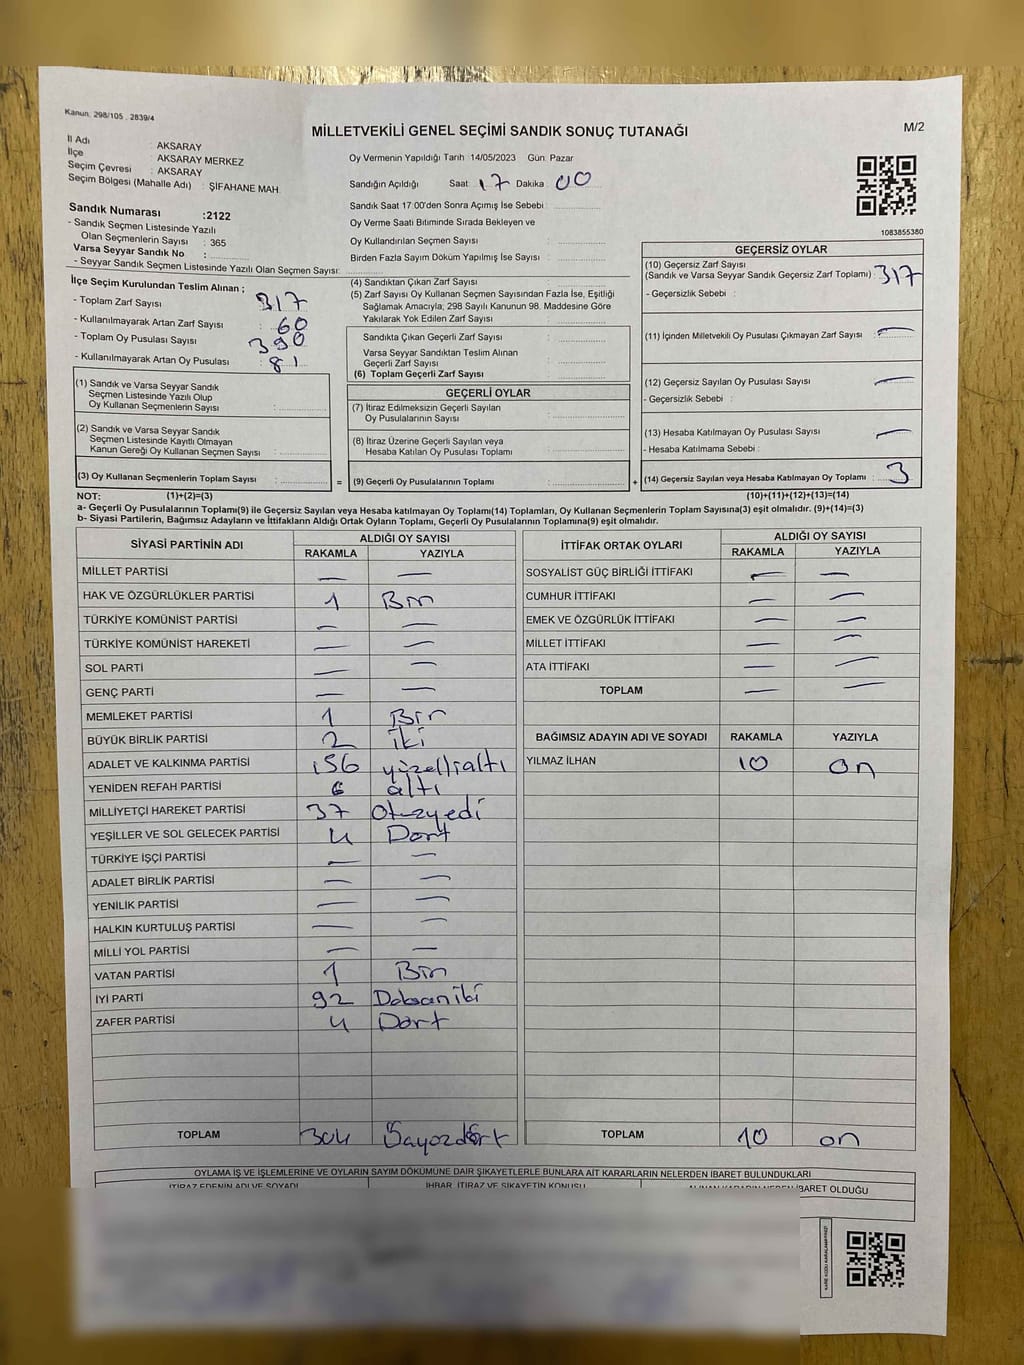 Kanun. 298/105 . 2839/4
MİLLETVEKİLİ GENEL SEÇİMİ SANDIK SONUÇ TUTANAĞI
M/2
İl Adı : AKSARAY
İlçe : AKSARAY MERKEZ
Seçim Çevresi : AKSARAY
Seçim Bölgesi (Mahalle Adı) : ŞİFAHANE MAH.
Sandık Numarası :2122
- Sandık Seçmen Listesinde Yazılı
Olan Seçmenlerin Sayısı : 365
Varsa Seyyar Sandık No :
- Seyyar Sandık Seçmen Listesinde Yazılı Olan Seçmen Sayısı:
Oy Vermenin Yapıldığı Tarih 14/05/2023 Gün: Pazar
Sandığın Açıldığı Saat 17 Dakika : 00
Sandık Saat 17:00'den Sonra Açımış İse Sebebi :
Oy Verme Saati Bitiminde Sırada Bekleyen ve
Oy Kullandırılan Seçmen Sayısı :
Birden Fazla Sayım Döküm Yapılmış İse Sayısı :
1083855380
İlçe Seçim Kurulundan Teslim Alınan ;
- Toplam Zarf Sayısı : 317
- Kullanılmayarak Artan Zarf Sayısı : 60
- Toplam Oy Pusulası Sayısı : 390
- Kullanılmayarak Artan Oy Pusulası : 81
(1) Sandık ve Varsa Seyyar Sandık
Seçmen Listesinde Yazılı Olup
Oy Kullanan Seçmenlerin Sayısı :
(2) Sandık ve Varsa Seyyar Sandık
Seçmen Listesinde Kayıtlı Olmayan
Kanun Gereği Oy Kullanan Seçmen Sayısı :
(3) Oy Kullanan Seçmenlerin Toplam Sayısı : =
(4) Sandıktan Çıkan Zarf Sayısı :
(5) Zarf Sayısı Oy Kullanan Seçmen Sayısından Fazla İse, Eşitliği
Sağlamak Amacıyla, 298 Sayılı Kanunun 98. Maddesine Göre
Yakılarak Yok Edilen Zarf Sayısı :
Sandıkta Çıkan Geçerli Zarf Sayısı :
Varsa Seyyar Sandıktan Teslim Alınan
Geçerli Zarf Sayısı :
(6) Toplam Geçerli Zarf Sayısı :
GEÇERLİ OYLAR
(7) İtiraz Edilmeksizin Geçerli Sayılan
Oy Pusulalarının Sayısı :
(8) İtiraz Üzerine Geçerli Sayılan veya
Hesaba Katılan Oy Pusulası Toplamı :
(9) Geçerli Oy Pusulalarının Toplamı : +
GEÇERSİZ OYLAR
(10) Geçersiz Zarf Sayısı
(Sandık ve Varsa Seyyar Sandık Geçersiz Zarf Toplamı) : 317
- Geçersizlik Sebebi :
(11) İçinden Milletvekili Oy Pusulası Çıkmayan Zarf Sayısı : —
(12) Geçersiz Sayılan Oy Pusulası Sayısı : —
- Geçersizlik Sebebi :
(13) Hesaba Katılmayan Oy Pusulası Sayısı : —
- Hesaba Katılmama Sebebi :
(14) Geçersiz Sayılan veya Hesaba Katılmayan Oy Toplamı : 3
NOT: (1)+(2)=(3) (10)+(11)+(12)+(13)=(14)
a- Geçerli Oy Pusulasının Toplamı(9) ile Geçersiz Sayılan veya Hesaba katılmayan Oy Toplamı(14) Toplamları, Oy Kullanan Seçmenlerin Toplam Sayısına(3) eşit olmalıdır. (9)+(14)=(3)
b- Siyasi Partilerin, Bağımsız Adayların ve İttifakların Aldığı Ortak Oyların Toplamı, Geçerli Oy Pusulalarının Toplamına(9) eşit olmalıdır.
SİYASİ PARTİNİN ADI ALDIĞI OY SAYISI
RAKAMLA YAZIYLA
MİLLET PARTİSİ — —
HAK VE ÖZGÜRLÜKLER PARTİSİ 1 Bir
TÜRKİYE KOMÜNİST PARTİSİ — —
TÜRKİYE KOMÜNİST HAREKETİ — —
SOL PARTİ — —
GENÇ PARTİ — —
MEMLEKET PARTİSİ 1 Bir
BÜYÜK BİRLİK PARTİSİ 2 iki
ADALET VE KALKINMA PARTİSİ 156 yüzellialtı
YENİDEN REFAH PARTİSİ 6 altı
MİLLİYETÇİ HAREKET PARTİSİ 37 Otuzyedi
YEŞİLLER VE SOL GELECEK PARTİSİ 4 Dört
TÜRKİYE İŞÇİ PARTİSİ — —
ADALET BİRLİK PARTİSİ — —
YENİLİK PARTİSİ — —
HALKIN KURTULUŞ PARTİSİ — —
MİLLİ YOL PARTİSİ — —
VATAN PARTİSİ 1 Bir
İYİ PARTİ 92 Doksaniki
ZAFER PARTİSİ 4 Dört
TOPLAM 304 Üçyüzdört
İTTİFAK ORTAK OYLARI ALDIĞI OY SAYISI
RAKAMLA YAZIYLA
SOSYALİST GÜÇ BİRLİĞİ İTTİFAKI — —
CUMHUR İTTİFAKI — —
EMEK VE ÖZGÜRLÜK İTTİFAKI — —
MİLLET İTTİFAKI — —
ATA İTTİFAKI — —
TOPLAM — —
BAĞIMSIZ ADAYIN ADI VE SOYADI RAKAMLA YAZIYLA
YILMAZ İLHAN 10 on
TOPLAM 10 on
OYLAMA İŞ VE İŞLEMLERİNE VE OYLARIN SAYIM DÖKÜMÜNE DAİR ŞİKAYETLERLE BUNLARA AİT KARARLARIN NELERDEN İBARET BULUNDUKLARI
İTİRAZ EDENİN ADI VE SOYADI İHBAR, İTİRAZ VE ŞİKAYETİN KONUSU ALINAN KARARIN NEDEN İBARET OLDUĞU